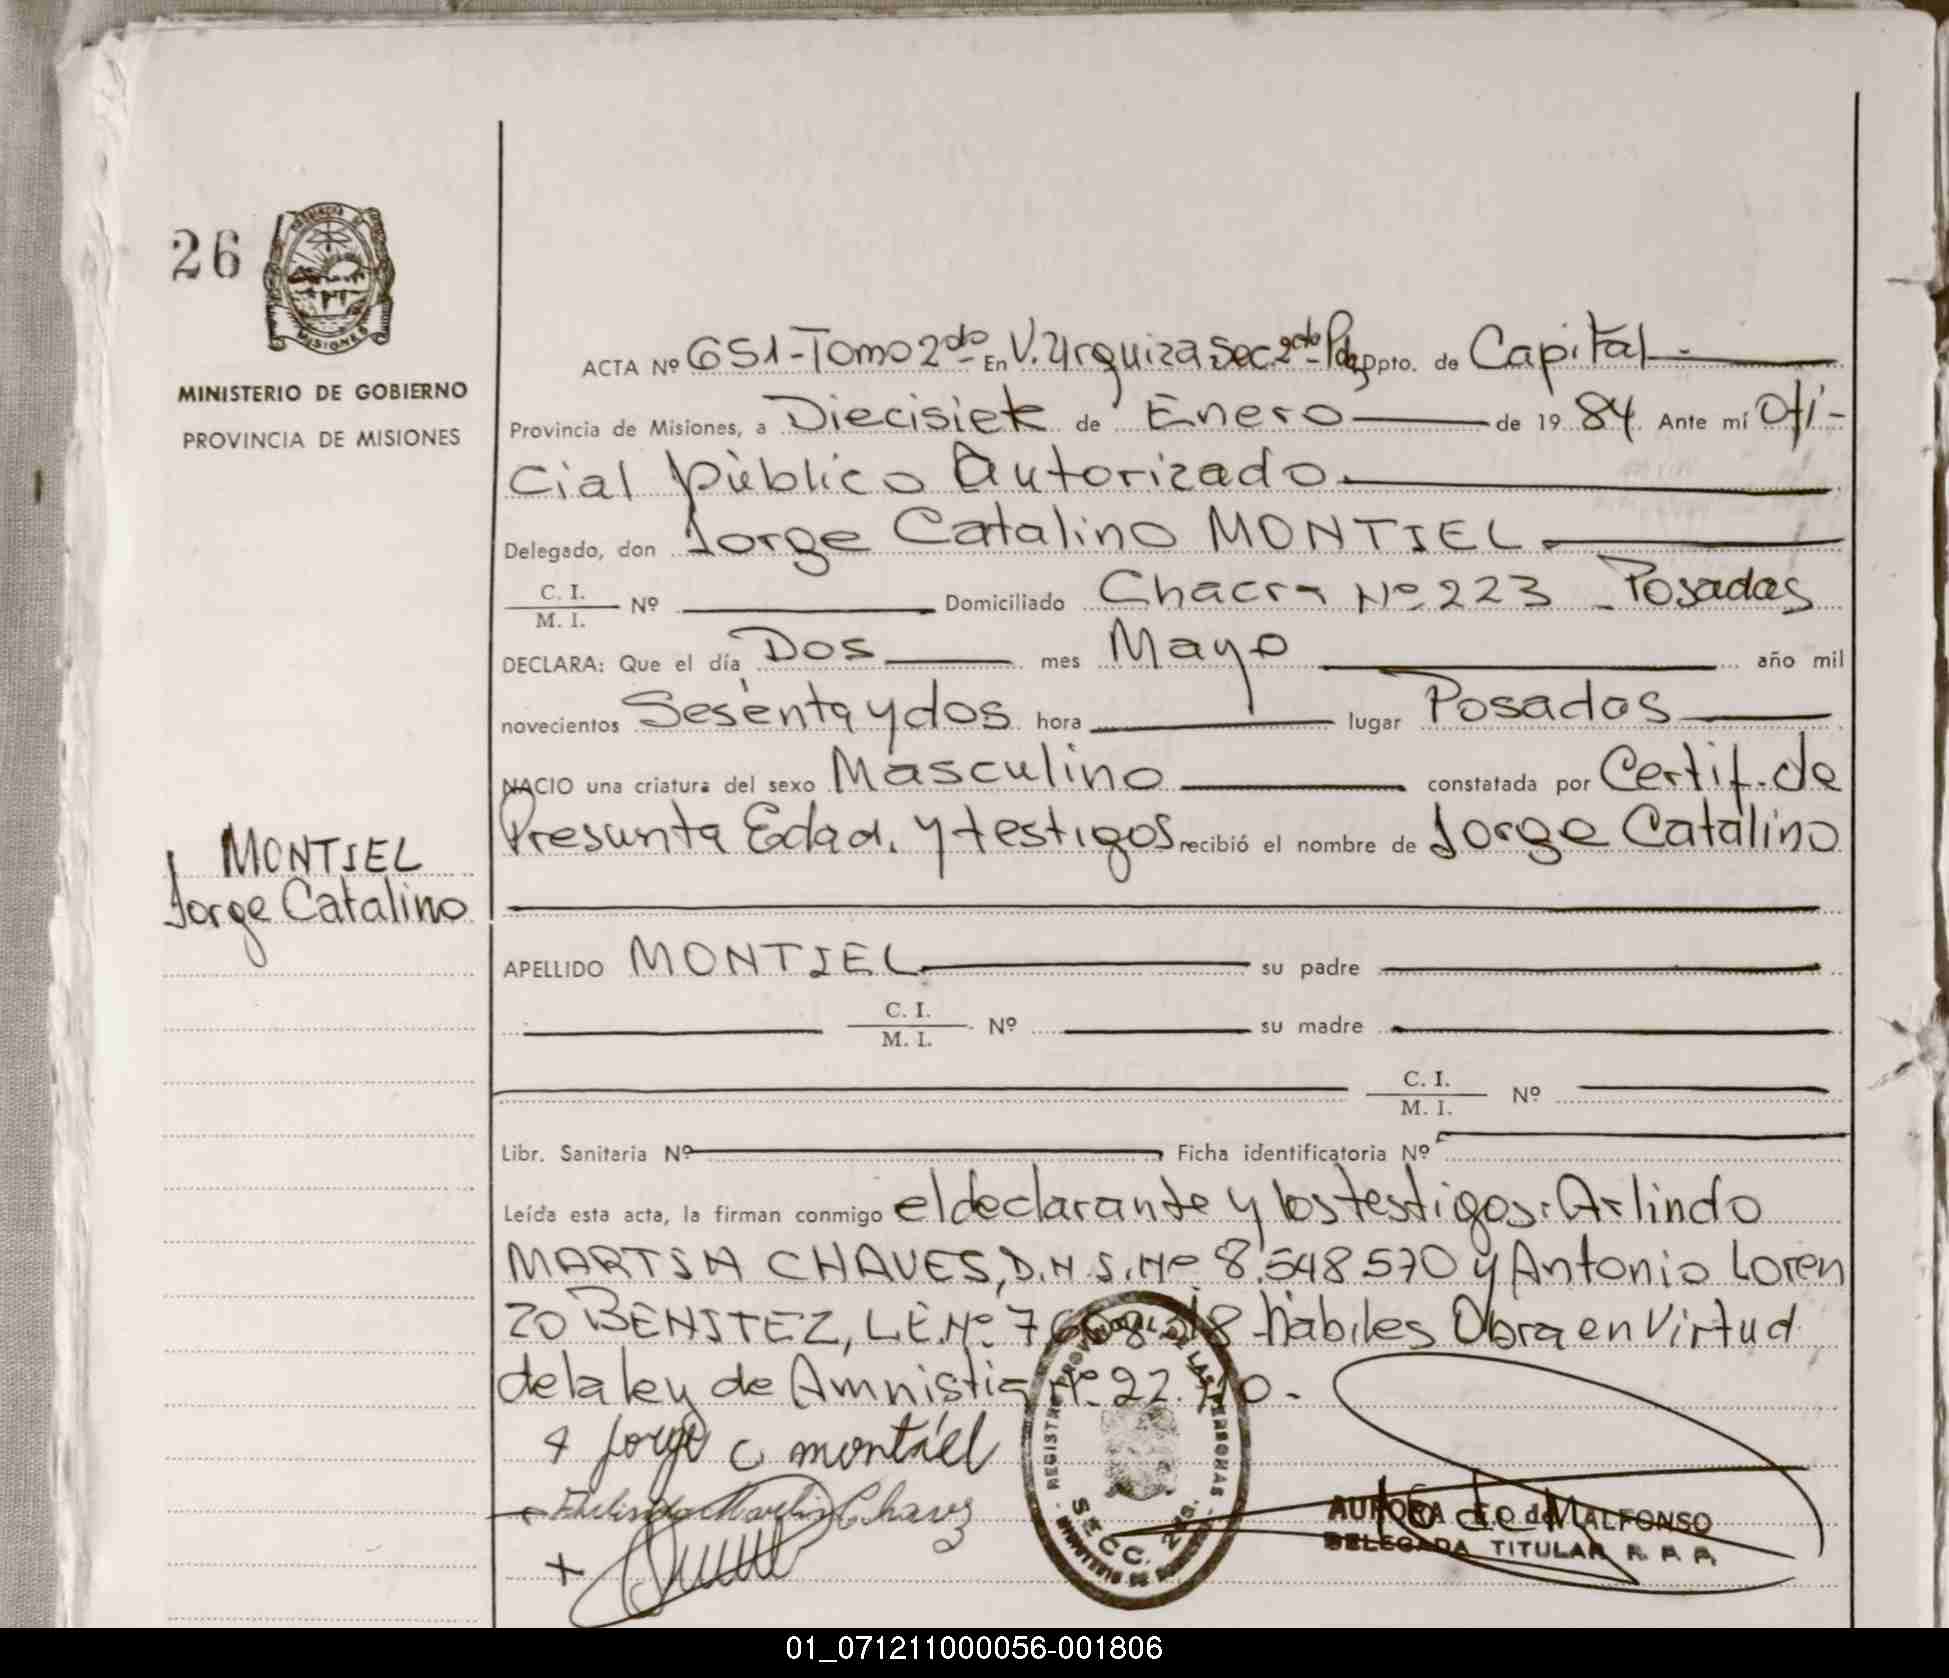 26
MINISTERIO DE GOBIERNO
PROVINCIA DE MISIONES
MONTIEL
Jorge Catalino
ACTA Nº 651-Tomo 2do- En V. Urquiza Sec. 2da- Pdas Dpto. de Capital -
Provincia de Misiones, a Diecisiete de Enero de 19 84. Ante mí Ofi-
cial público Autorizado
Delegado, don Jorge Catalino MONTIEL
C. I.
M. I. Nº Domiciliado Chacra Nº 223 - Posadas
DECLARA: Que el día Dos mes Mayo año mil
novecientos Sesenta y dos hora lugar Posadas
NACIO una criatura del sexo Masculino constatada por Certif. de
Presunta Edad. y testigos recibió el nombre de Jorge Catalino
APELLIDO MONTIEL su padre
C. I.
M. I. Nº su madre
C. I.
M. I. Nº
Libr. Sanitaria Nº Ficha identificatoria Nº
Leída esta acta, la firman conmigo el declarante y los testigos: Arlindo
MARTIN CHAVES, D.N.I. Nº 8.548.570 y Antonio Loren
zo BENITEZ, L.E. Nº 7.608.518 hábiles Obra en Virtud
de la ley de Amnistia Nº 22.
Jorge C montiel
Martin Chavez
REGISTRO PROVINCIAL DE LAS PERSONAS
SECC. 2da.
AURORA E. de MALFONSO
DELEGADA TITULAR R. P. P.
01_071211000056-001806